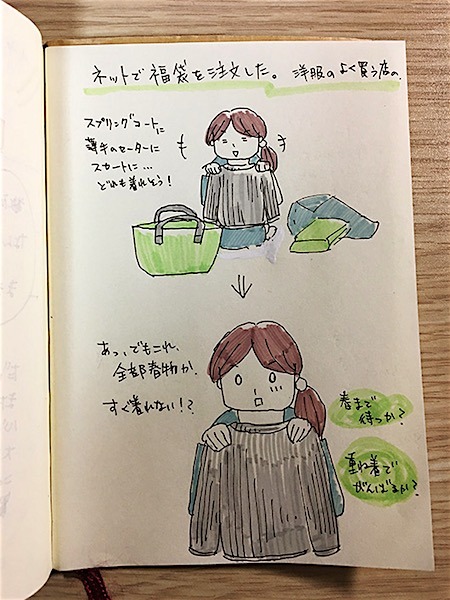 ネットで福袋を注文した。洋服のよく買う店の。
スプリングコートに
薄手のセーターに
スカートに…
どれも着れそう!
あっ、でもこれ、
全部春物か、
すぐ着れない!?
春まで
待つか?
重ね着で
がんばるか?